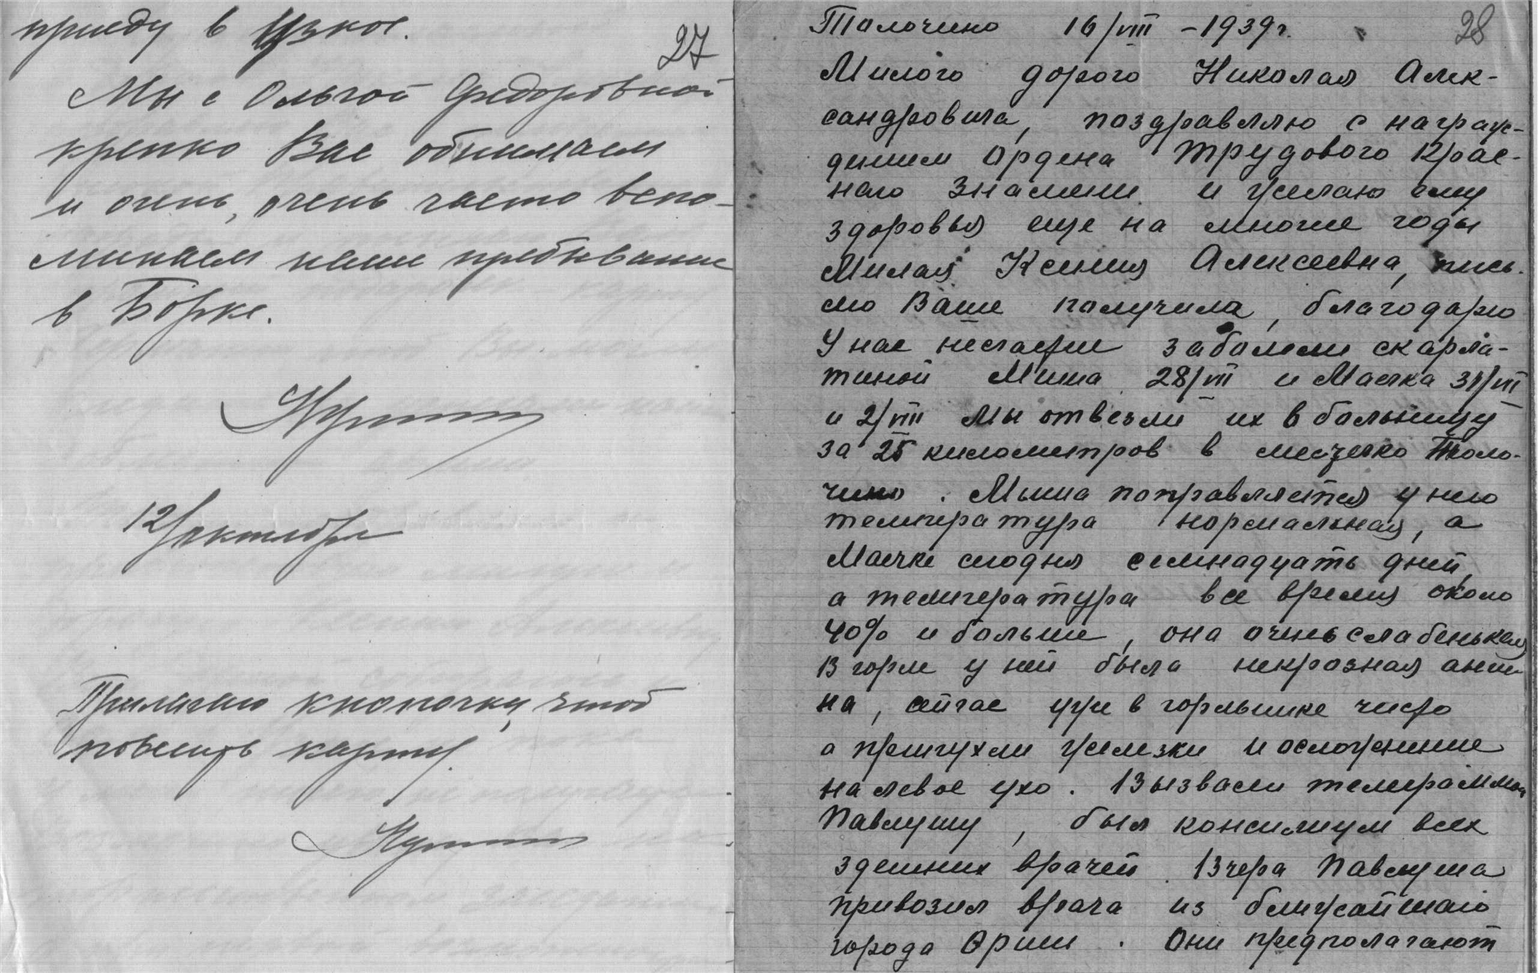 приеду в Узкое.
27
Мы с Ольгой Федоровной
крепко Вас обнимаем
и очень, очень часто вспо-
минаем наше пребывание
в Борке.
12/октября
Прилагаю кнопочку, чтоб
повесить карту.
Толочино 16/VIII – 1939 г.
28
Милого дорого Николая Алек-
сандровича, поздравляю с награж-
дением Ордена Трудового Крас-
ного Знамени и желаю ему
здоровья еще на многие годы
Милая Ксения Алексеевна, пись-
мо Ваше получила, благодарю
У нас несчастие заболели скарла-
тиной Миша 28/VII и Маечка 31/VII
и 2/VIII мы отвезли их в больницу
за 25 километров в местечко Толо-
чино. Миша поправляется у него
температура нормальная, а
Маечке сегодня семнадцать дней,
а температура все время около
40% и больше, она очень слабенькая
В горле у ней была некрозная анги-
на, сейчас уже в горлышке чисто
а припухли железки и осложнение
на левое ухо. Вызвали телеграммой
Павлушу, был консилиум всех
здешних врачей. Вчера Павлуша
привозил врача из ближайшаго
города Орши. Они предполагают